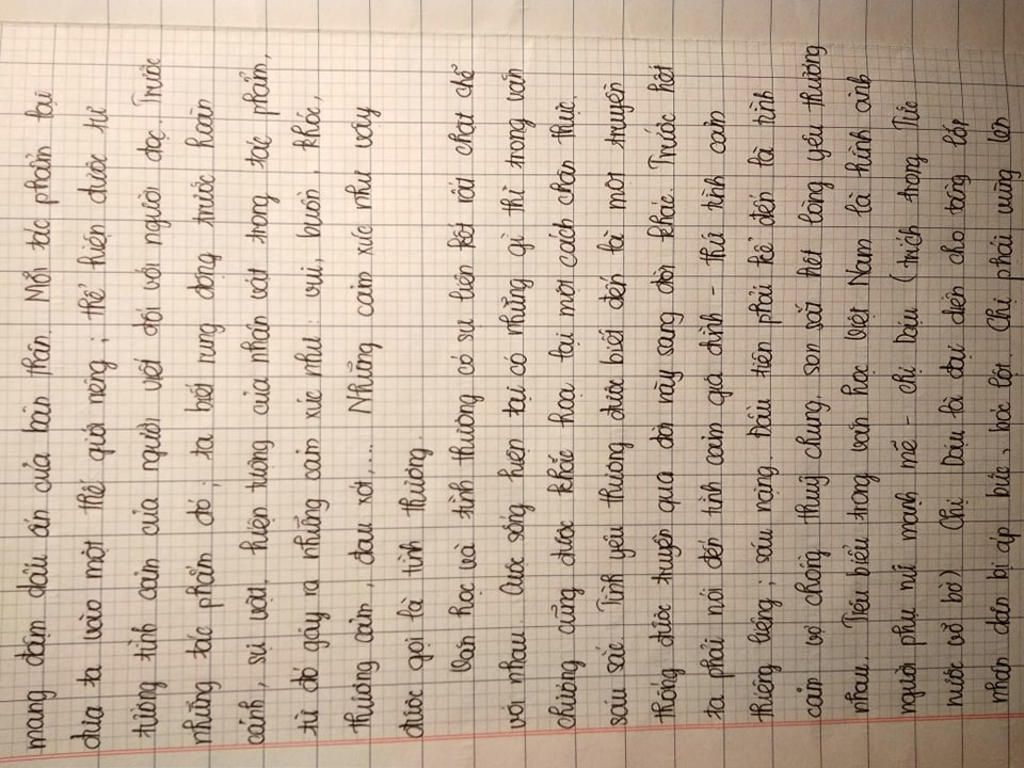 mang đậm dấu ấn của bản thân. Mỗi tác phẩm lại
đưa ta vào một thế giới riêng ; thể hiện được tư
tưởng tình cảm của người viết đối với người đọc. Trước
những tác phẩm đó ; ta biết rung động trước hoàn
cảnh, sự vật, hiện tượng của nhân vật trong tác phẩm,
từ đó gây ra những cảm xúc như : vui, buồn, khóc,
thương cảm, đau xót,.... Những cảm xúc như vậy
được gọi là tình thương.
Văn học và tình thương có sự liên kết rất chặt chẽ
với nhau. Cuộc sống hiện tại có những gì thì trong văn
chương cũng được khắc họa lại một cách chân thực,
sâu sắc. Tình yêu thương được biết đến là một truyền
thống được truyền qua đời này sang đời khác. Trước hết
ta phải nói đến tình cảm gia đình - thứ tình cảm
thiêng liêng ; sâu nặng. Đầu tiên phải kể đến là tình
cảm vợ chồng thuỷ chung, son sắt hết lòng yêu thương
nhau. Tiêu biểu trong văn học Việt Nam là hình ảnh
người phụ nữ mạnh mẽ - chị Dậu (trích trong Tức
nước vỡ bờ) Chị Dậu là đại diện cho tầng lớp
nhân dân bị áp bức, bóc lột. Chị phải vững lên